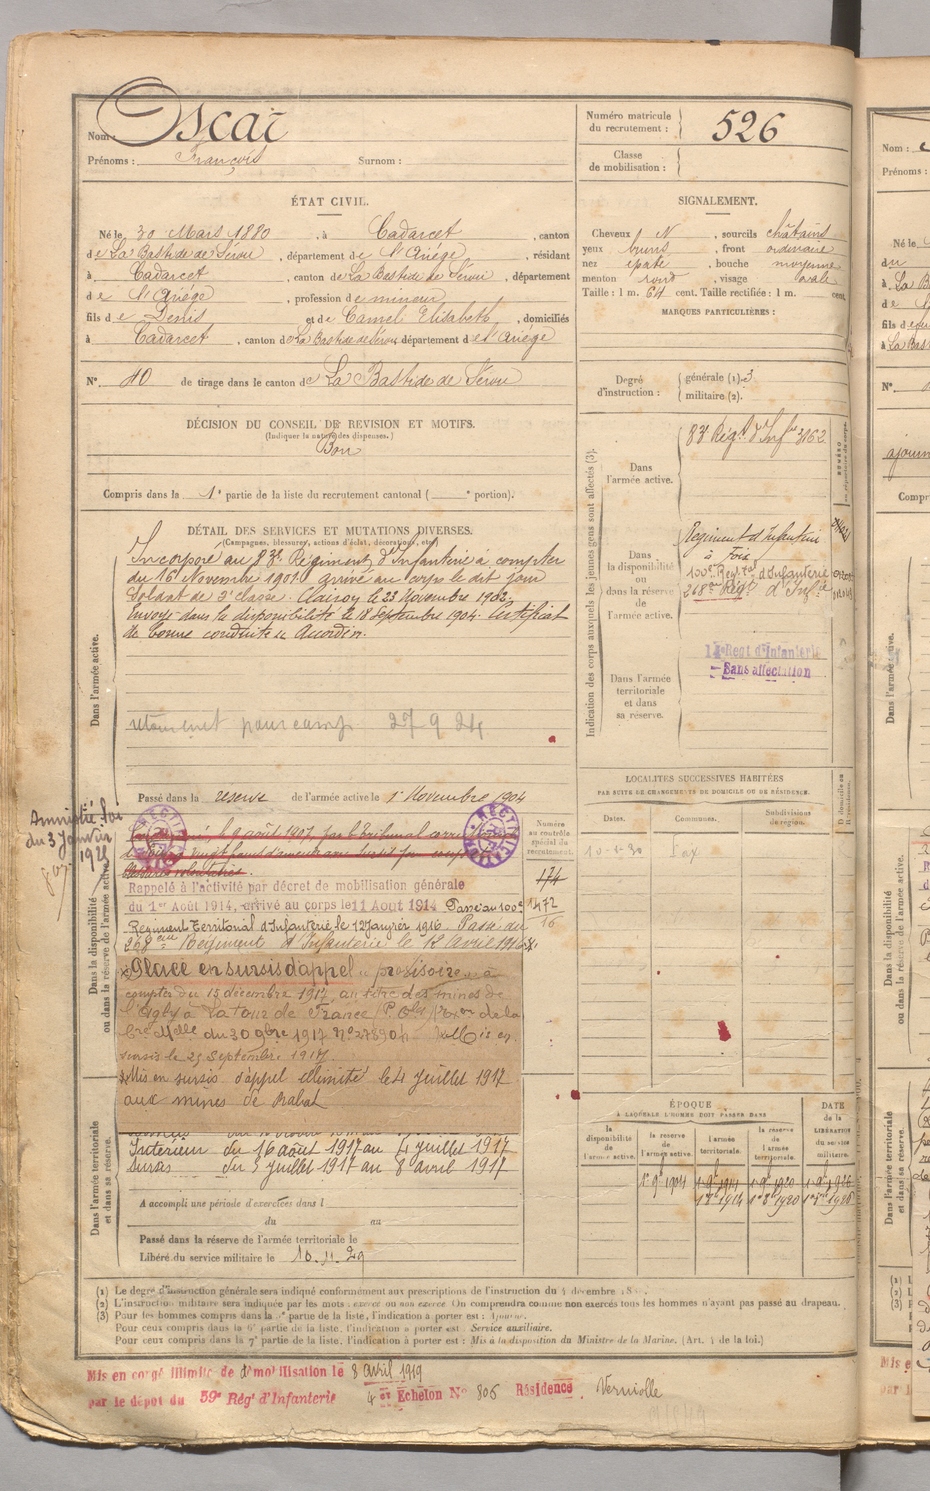 Nom : Oscar
Prénoms : François Surnom :
Numéro matricule du recrutement : 526
Classe de mobilisation :
ÉTAT CIVIL.
Né le 30 Mars 1880, à Cadarcet, canton
de La Bastide de Sérou, département de l'Ariége, résidant
à Cadarcet, canton de La Bastide de Sérou, département
de l'Ariége, profession de mineur
fils de Denis et de Camel Elisabeth, domiciliés
à Cadarcet, canton de La Bastide de Sérou département de l'Ariége
N° 40 de tirage dans le canton de La Bastide de Sérou
SIGNALEMENT.
Cheveux N, sourcils châtains
yeux bruns, front ordinaire
nez épaté, bouche moyenne
menton rond, visage ovale
Taille : 1 m. 64 cent. Taille rectifiée : 1 m. cent.
MARQUES PARTICULIÈRES :
Degré d'instruction : générale (1) 3
militaire (2).
DÉCISION DU CONSEIL DE REVISION ET MOTIFS.
(Indiquer la nature des dispenses.)
Bon
Compris dans la 1e partie de la liste du recrutement cantonal ( e portion).
DÉTAIL DES SERVICES ET MUTATIONS DIVERSES.
(Campagnes, blessures, actions d'éclat, décorations, etc.)
Dans l'armée active.
Incorporé au 83e Régiment d'Infanterie à compter
du 16 Novembre 1901 arrivé au corps le dit jour
Soldat de 2e classe. Clairon le 23 Novembre 1902.
Envoyé dans la disponibilité le 18 Septembre 1904. Certificat
de bonne conduite Accordé.
pour camp 27 9 24
Passé dans la réserve de l'armée active le 1 Novembre 1904
Amnistié Loi
du 3 Janvier
1925
Dans la disponibilité ou dans la réserve de l'armée active.
le 9 août 1907 par le Tribunal
Rappelé à l'activité par décret de mobilisation générale
du 1er Août 1914, arrivé au corps le 11 Aout 1914 Passé au 100e
Régiment Territorial d'Infanterie, le 12 Janvier 1916. Passé au
268ème Régiment d'Infanterie le 12 Avril 1916
Placé en sursis d'appel provisoire à
compter du 15 décembre 1917 au titre des mines de
l'Agly à La Tour de France
du 30 9bre 1917 N° 27890
sursis le 25 Septembre 1917.
Mis en sursis d'appel illimité le 4 juillet 1917
aux mines de Rabat
Intérieur du 16 août 1917 au 4 juillet 1917
Sursis du 5 juillet 1917 au 8 avril 1917
Dans l'armée territoriale et dans sa réserve.
A accompli une période d'exercices dans l
du au
Passé dans la réserve de l'armée territoriale le
Libéré du service militaire le 10.11.29
Numéro au contrôle spécial du recrutement.
174
1472
16
Indication des corps auxquels les jeunes gens sont affectés (3).
Dans l'armée active.
83e Régt d'Infie 3162
Dans la disponibilité ou dans la réserve de l'armée active.
Régiment d'Infanterie
à Foix
100e Régt Tal d'Infanterie
268ème Régt d'Infie
Dans l'armée territoriale et dans sa réserve.
Régt d'Infanterie
Sans affectation
LOCALITÉS SUCCESSIVES HABITÉES
PAR SUITE DE CHANGEMENTS DE DOMICILE OU DE RÉSIDENCE.
Dates. Communes. Subdivision de région.
D domicile ou R résidence.
ÉPOQUE
À LAQUELLE L'HOMME DOIT PASSER DANS
la disponibilité de l'armée active.
la réserve de l'armée active.
l'armée territoriale.
la réserve de l'armée territoriale.
DATE de la LIBÉRATION du service militaire.
1er 9bre 1904 1er 9bre 1914 1er 9bre 1920 1er 9bre 1926
1er 8bre 1914 1er 8bre 1920 1er 8bre 1926
(1) Le degré d'instruction générale sera indiqué conformément aux prescriptions de l'instruction du 4 décembre
(2) L'instruction militaire sera indiquée par les mots : exercé ou non exercé. On comprendra comme non exercés tous les hommes n'ayant pas passé au drapeau.
(3) Pour les hommes compris dans la partie de la liste, l'indication à porter est :
Pour ceux compris dans la 6e partie de la liste, l'indication à porter est : Service auxiliaire.
Pour ceux compris dans la 7e partie de la liste, l'indication à porter est : Mis à la disposition du Ministre de la Marine. (Art. 4 de la loi.)
Mis en congé illimité de démobilisation le 8 avril 1919
par le dépôt du 59e Régt d'Infanterie 4e Echelon N° 806 Résidence Verniolle